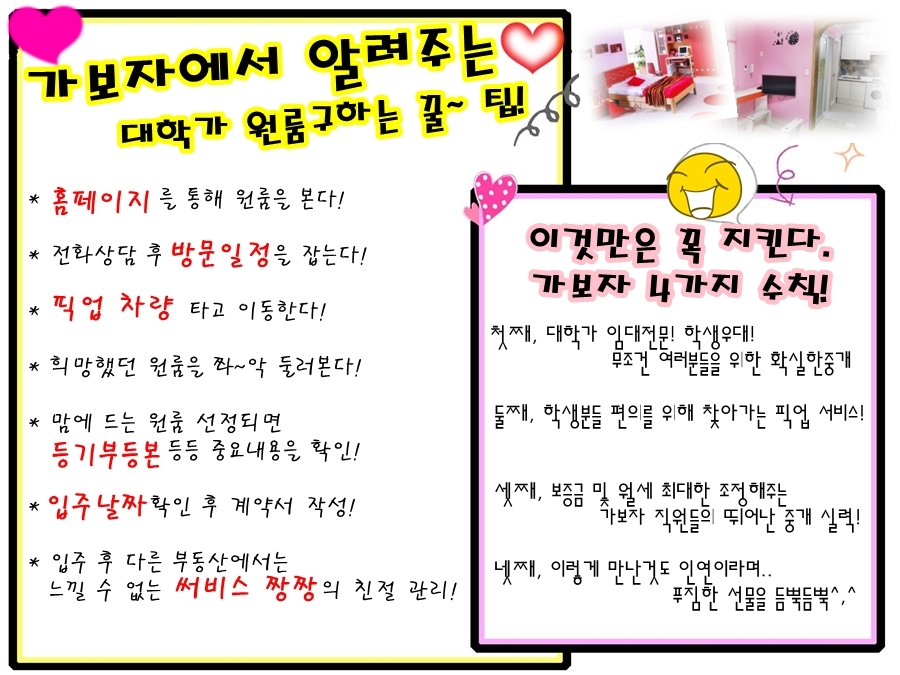 가보자에서 알려주는
대학가 원룸구하는 꿀~ 팁!
* 홈페이지를 통해 원룸을 본다!
* 전화상담 후 방문일정을 잡는다!
* 픽업 차량 타고 이동한다!
* 희망했던 원룸을 쫘~악 둘러본다!
* 맘에 드는 원룸 선정되면
등기부등본 등등 중요내용을 확인!
* 입주날짜확인 후 계약서 작성!
* 입주 후 다른 부동산에서는
느낄 수 없는 써비스 짱짱의 친절 관리!
이것만은 꼭 지킨다.
가보자 4가지 수칙!
첫째, 대학가 임대전문! 학생우대!
무조건 여러분들을 위한 확실한중개
둘째, 학생분들 편의를 위해 찾아가는 픽업 서비스!
셋째, 보증금 및 월세 최대한 조정해주는
가보자 직원들의 뛰어난 중개 실력!
넷째, 이렇게 만난것도 인연이라며..
푸짐한 선물을 듬뿍듬뿍^,^